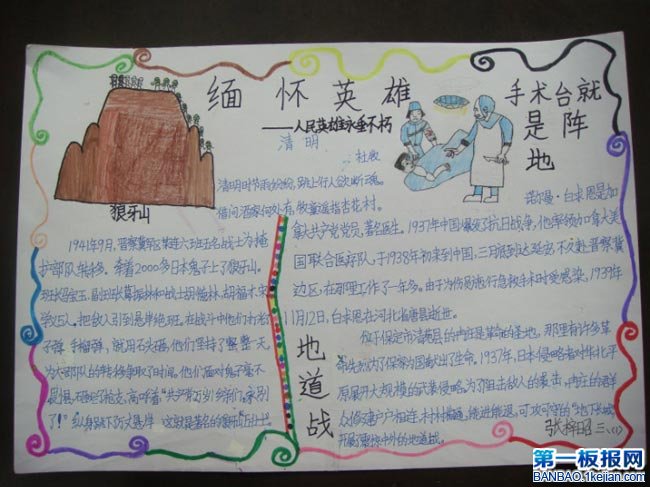 缅怀英雄
——人民英雄永垂不朽
清明
杜牧
清明时节雨纷纷,路上行人欲断魂。
借问酒家何处有,牧童遥指杏花村。
狼牙山
1941年9月,晋察冀军区某连六班五名战士为掩
护部队转移。牵着2000多日本鬼子上了狼牙山。
班长马宝玉,副班长葛振林和战士胡德林、胡福才、宋
学义5人。把敌人引到悬崖绝
子弹、手榴弹,就用石头砸,他们坚持了整整一天,
为大部队的转移争取了时间。他们面对鬼子毫不
畏惧
了!"纵身跳下万丈悬崖
手术台就
是阵
地
诺尔曼·白求恩是加
拿大共产党党员,著名医生。1937年中国爆发了抗日战争,他率领加拿美
国联合医疗队,于1938年初来到中国,三月底到达延安,不久赴晋察冀
边区,在那里工作了一年多。由于为伤员施行急救手术时受感染,1939年
11月12日,白求恩在河北省唐县逝世。
地道战
位于保定市清苑县的冉庄是革命的圣地,那里有许多革
命先烈为了保家为国献出了生命。1937年,日本侵略者对华北平
原展开大规模的武装侵略。为了阻击敌人的袭击,冉庄的群
众修建户户相连,村村相通,能进能退,可攻可守的"地下长城"
开展震惊中外的地道战。
三、(1)
第一板报网
BANBAO.1kejian.com